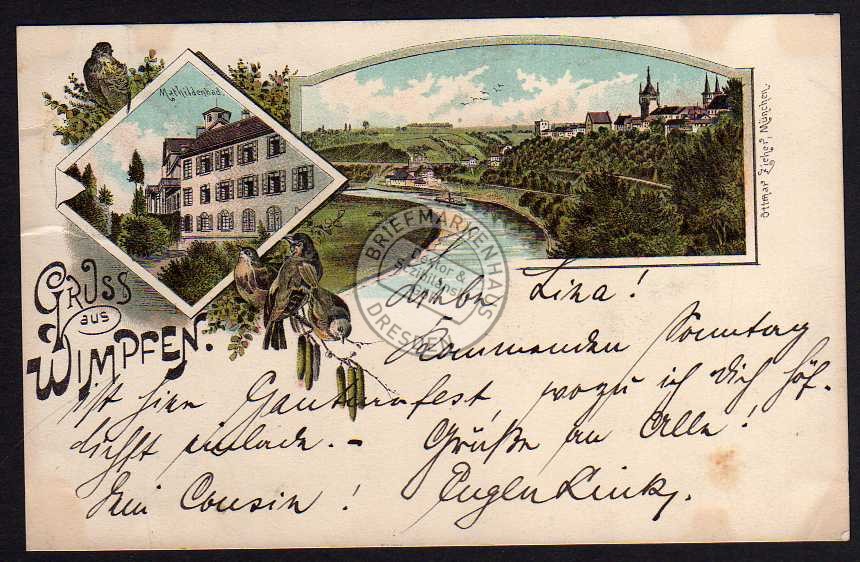 Mathildenbad.
Ottmar Zieher, München.
GRUSS
aus
WIMPFEN.
BRIEFMARKENHAUS
DRESDEN
Liebe Lina!
Kommenden Sonntag
ist hier Gauturnfest, wozu ich dich höf-
lichst einlade. – Grüße an Alle!
Dein Cousin! Eugen Link.